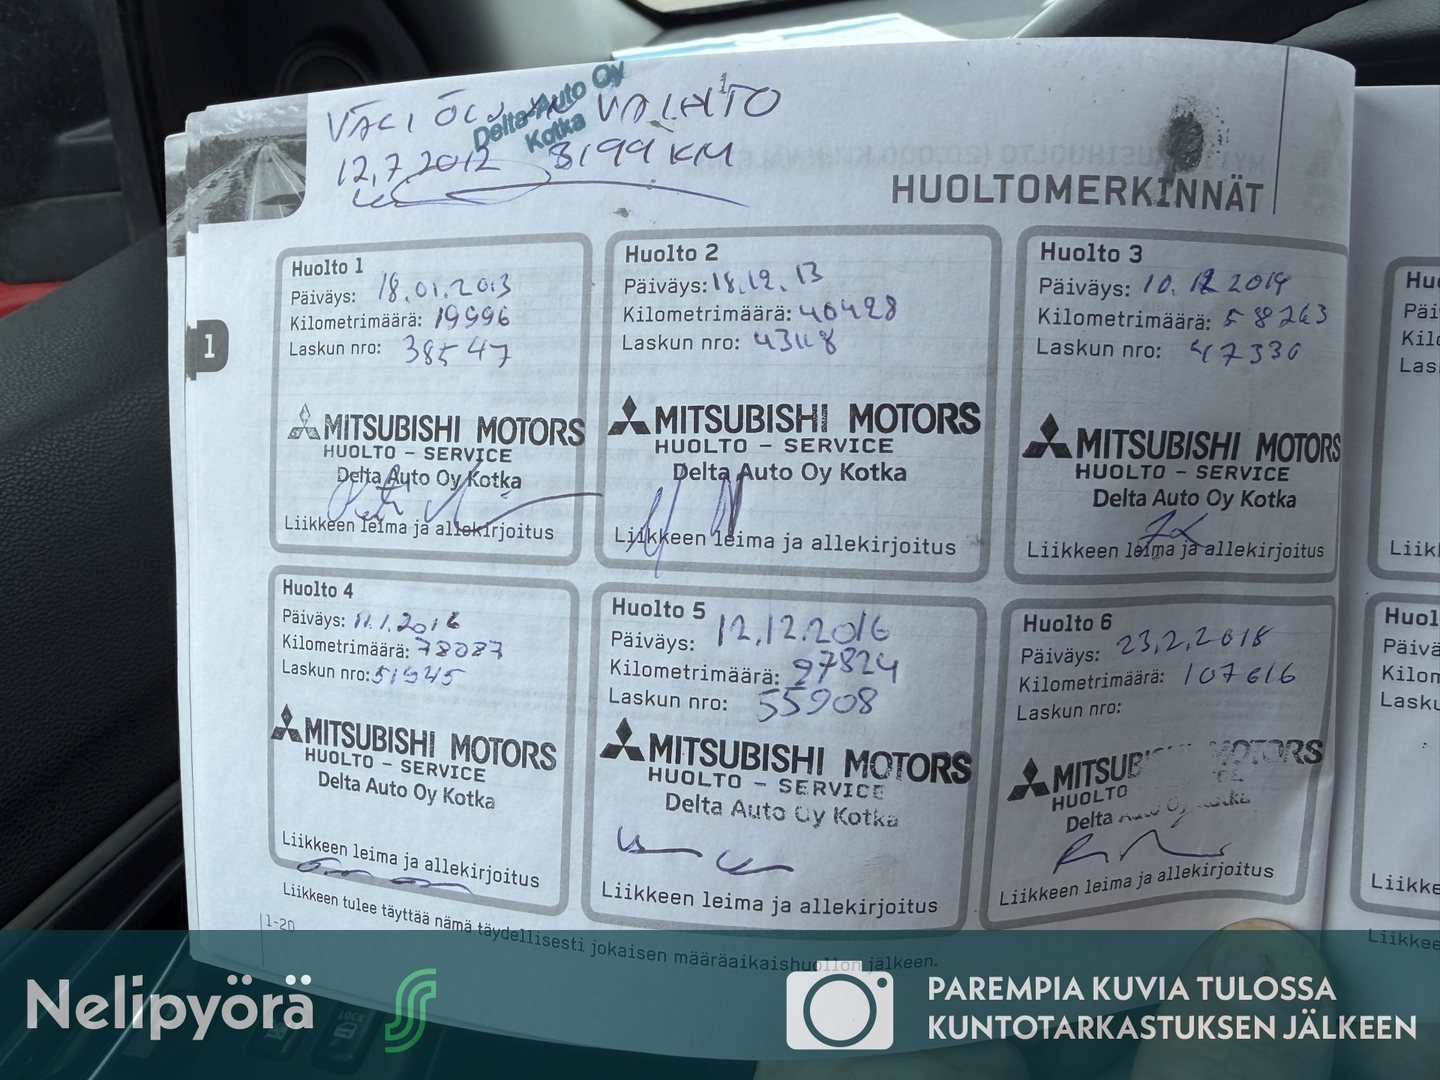 VÄLI ÖLJYN VAIHTO
Delta Auto Oy
Kotka
12.7.2012 8199 KM
HUOLTOMERKINNÄT
1
Huolto 1
Päiväys: 18.01.2013
Kilometrimäärä: 19996
Laskun nro: 38547
MITSUBISHI MOTORS
HUOLTO - SERVICE
Delta Auto Oy Kotka
Liikkeen leima ja allekirjoitus
Huolto 2
Päiväys: 18.12.13
Kilometrimäärä: 40428
Laskun nro: 43118
MITSUBISHI MOTORS
HUOLTO - SERVICE
Delta Auto Oy Kotka
Liikkeen leima ja allekirjoitus
Huolto 3
Päiväys: 10.12.2014
Kilometrimäärä: 58263
Laskun nro: 47336
MITSUBISHI MOTORS
HUOLTO - SERVICE
Delta Auto Oy Kotka
Liikkeen leima ja allekirjoitus
Huolto 4
Päiväys: 11.1.2016
Kilometrimäärä: 78087
Laskun nro: 51945
MITSUBISHI MOTORS
HUOLTO - SERVICE
Delta Auto Oy Kotka
Liikkeen leima ja allekirjoitus
Huolto 5
Päiväys: 12.12.2016
Kilometrimäärä: 97824
Laskun nro: 55908
MITSUBISHI MOTORS
HUOLTO - SERVICE
Delta Auto Oy Kotka
Liikkeen leima ja allekirjoitus
Huolto 6
Päiväys: 23.2.2018
Kilometrimäärä: 107616
Laskun nro:
MITSUBISHI MOTORS
HUOLTO
Delta Auto Oy Kotka
Liikkeen leima ja allekirjoitus
Liikkeen tulee täyttää nämä täydellisesti jokaisen määräaikaishuollon jälkeen.
1-20
Nelipyörä
PAREMPIA KUVIA TULOSSA
KUNTOTARKASTUKSEN JÄLKEEN